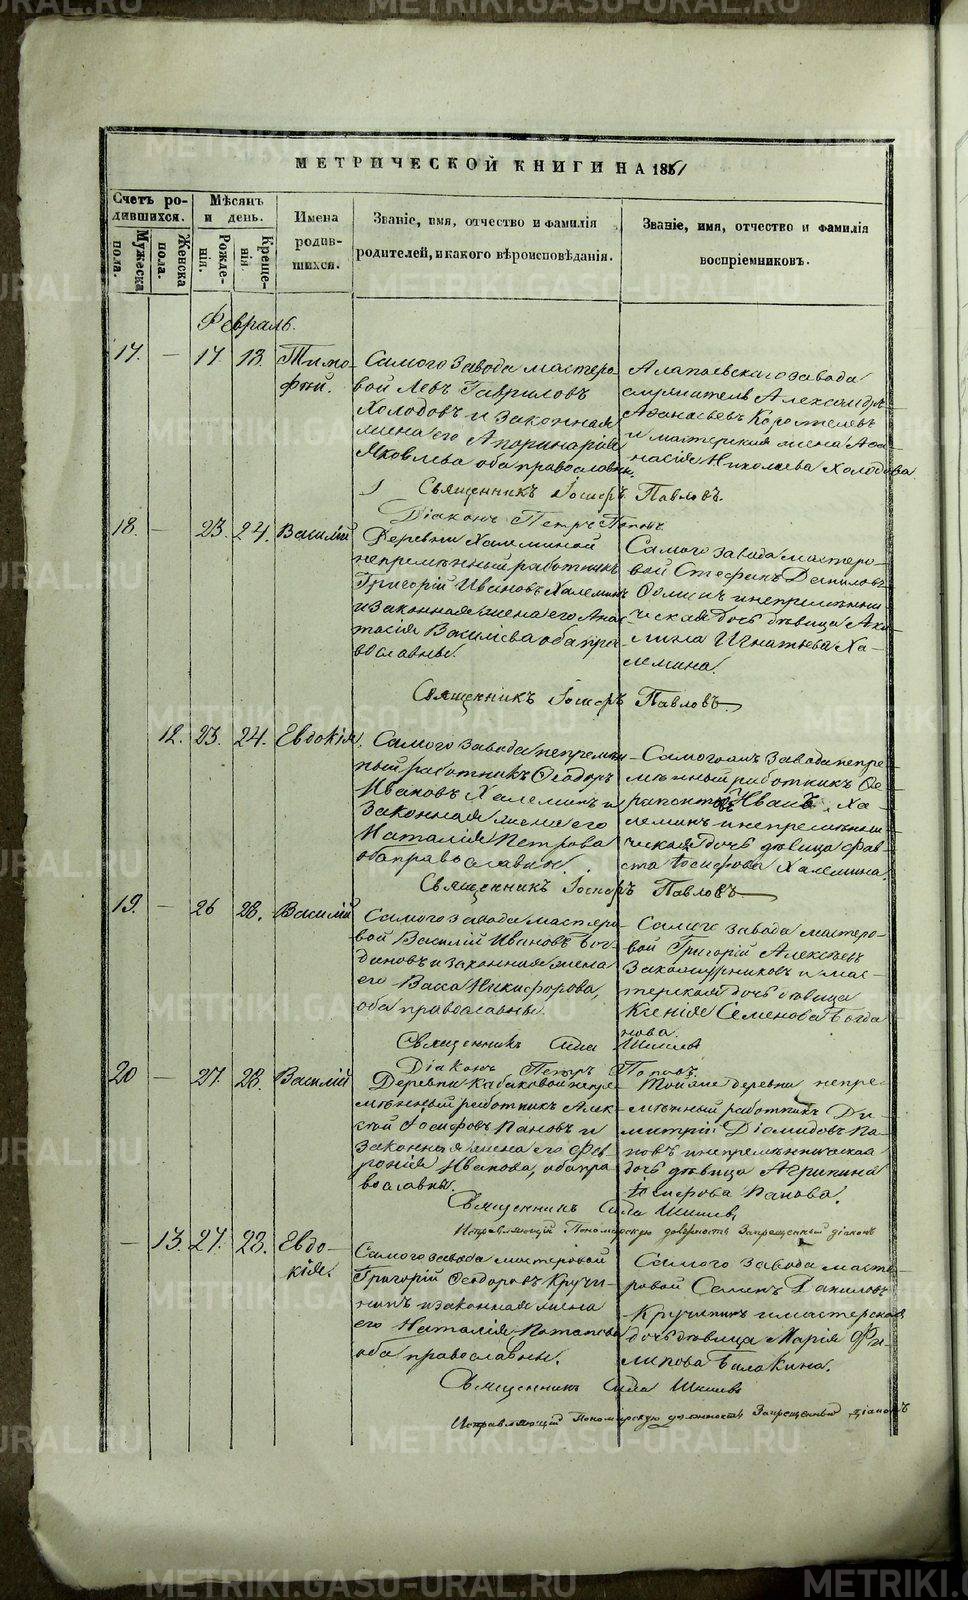 МЕТРИЧЕСКОЙ КНИГИ НА 1861
Счетъ ро-
дившихся.
Мужеска
пола.
Женска
пола.
Мѣсяцъ
и день.
Рожде-
нія.
Креще-
нія.
Имена
родив-
шихся.
Званіе, имя, отчество и фамилія
родителей, и какого вѣроисповѣданія.
Званіе, имя, отчество и фамилія
воспріемниковъ.
Февраль.
17. — 17 18. Тимо-
фей.
Самого завода мастеро-
вой Левъ Гавриловъ
Холодовъ и законная
жена его Апоринарія
Яковлева оба православны.
Алапаевскаго завода
служитель Александръ
Афанасьевъ Коростелевъ
и мастерская жена Афа-
насія Николаева Холодова
Священникъ Іосифъ Павловъ.
Діаконъ Петръ Поповъ
18. — 23. 24. Василій
Деревни Халеминой
непремѣнный работникъ
Григорій Ивановъ Халеминъ
и законная жена его Анас-
тасія Василіева оба пра-
вославны.
Самого завода мастеро-
вой Стефанъ Даниловъ
и непремѣнни-
ческая дочь дѣвица Аку-
лина Игнатьева Ха-
лемина.
Священникъ Іосифъ Павловъ
12. 23. 24. Евдокія.
Самого завода непремѣн-
ный работникъ Ѳеодоръ
Ивановъ Халеминъ и
законная жена его
Наталія Петрова
оба православны.
Самогожъ завода непре-
мѣнный работникъ Ѳе-
рапонтъ Ивановъ Ха-
леминъ и непремѣнни-
ческая дочь дѣвица Фав-
ста Іосифова Халемина.
Священникъ Іосифъ Павловъ
19. — 26 28. Василій
Самого завода мастеро-
вой Василій Ивановъ Бог-
дановъ и законная жена
его Васса Никифорова,
оба православны.
Самого завода мастеро-
вой Григорій Алексѣевъ
Закожурниковъ и мас-
терская дочь дѣвица
Ксенія Семенова Богда
нова.
Священникъ Сила Шишевъ
Діаконъ Петръ Поповъ
20 — 27. 28. Василій
Деревни Кабаковой непре-
мѣнный работникъ Алек-
сѣй Іосифовъ Пановъ и
законная жена его Фев-
ронія Иванова, оба пра-
вославны.
Тойже деревни непре-
мѣнный работникъ Ди-
митрій Діомидовъ Па-
новъ и непремѣнническая
дочь дѣвица Агрипина
Іосифова Панова.
Священникъ Сила Шишевъ
Исправляющій Пономарскую должность Запрещенный діаконъ
— 13. 27. 28. Евдо-
кія.
Самого завода мастеровой
Григорій Ѳеодоровъ Кручи-
нинъ и законная жена
его Наталія Потапова
оба православны.
Самого завода масте-
ровой Семенъ Даниловъ
Кручининъ и мастерская
дочь дѣвица Марія Фи-
липова Билакина.
Священникъ Сила Шишевъ
Исправляющій Пономарскую должность Запрещенный діаконъ
METRIKI.GASO-URAL.RU